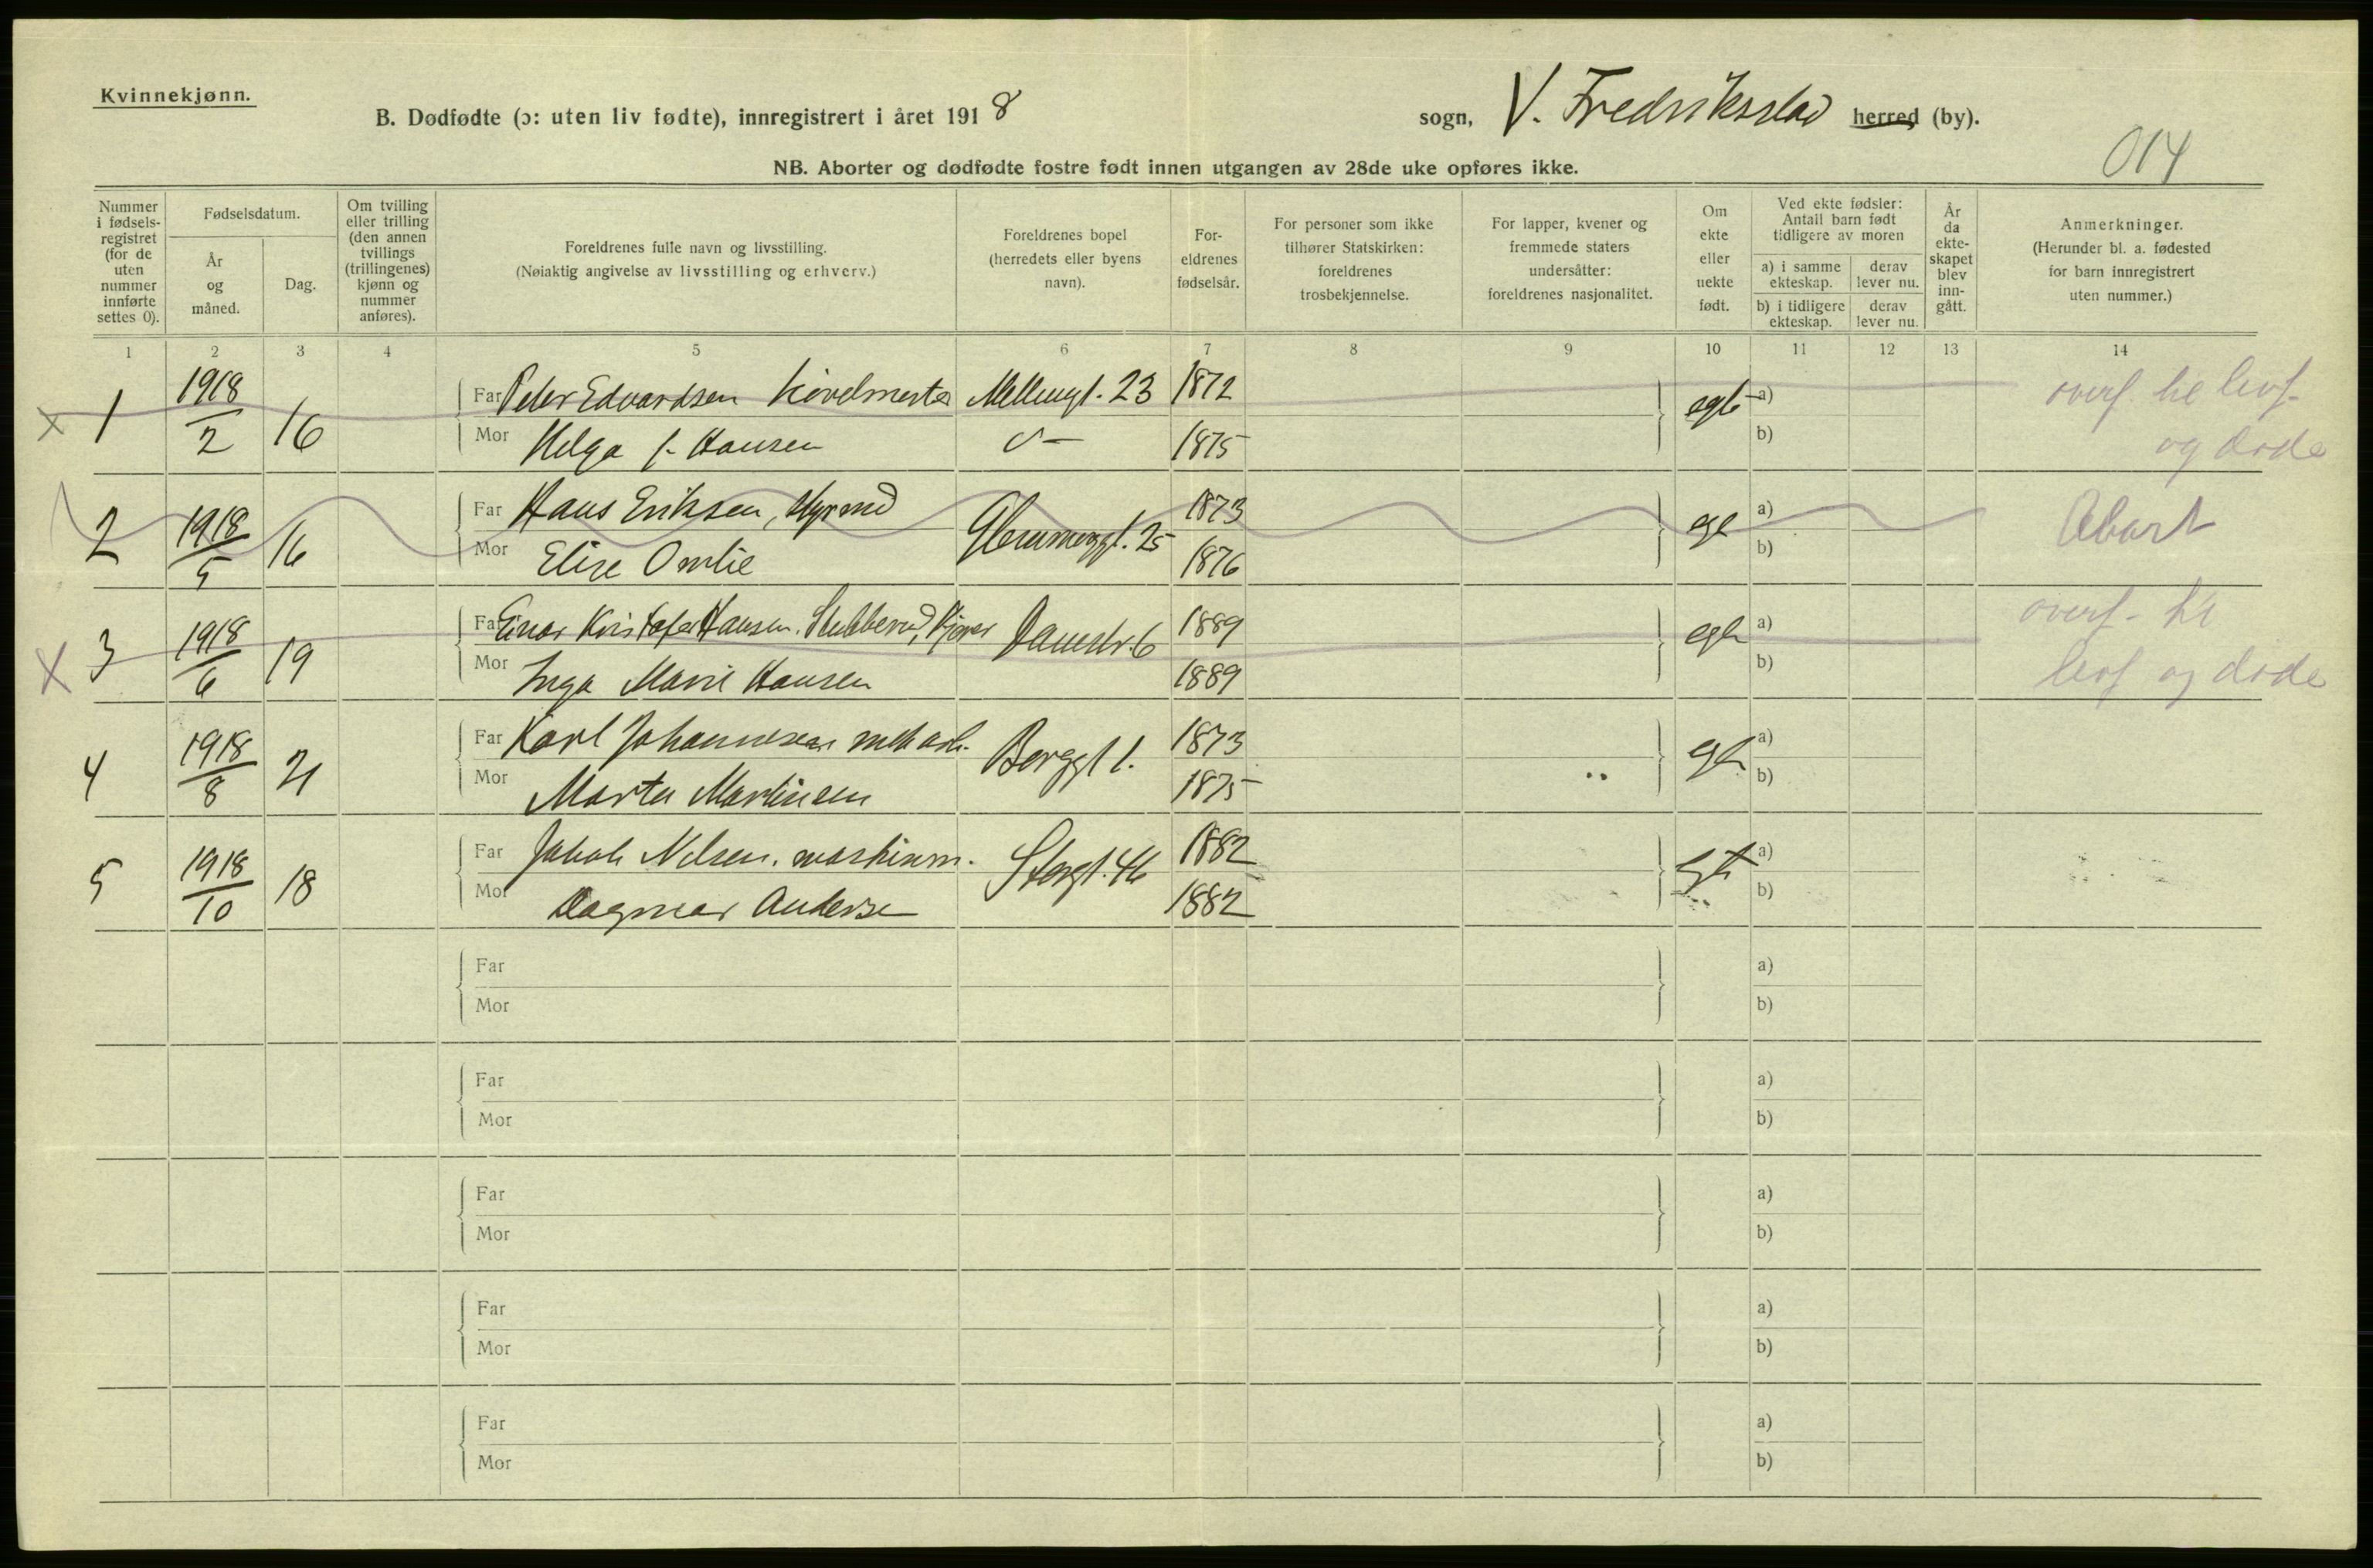 Kvinnekjønn.
B. Dødfødte (ɔ: uten liv fødte), innregistrert i året 1918 sogn, V. Fredriksstad herred (by).
014
NB. Aborter og dødfødte fostre født innen utgangen av 28de uke opføres ikke.
Nummer i fødsels-registret (for de uten nummer innførte settes 0).
Fødselsdatum.
År og måned.
Dag.
Om tvilling eller trilling (den annen tvillings (trillingenes) kjønn og nummer anføres).
Foreldrenes fulle navn og livsstilling.
(Nøiaktig angivelse av livsstilling og erhverv.)
Foreldrenes bopel (herredets eller byens navn).
For-eldrenes fødselsår.
For personer som ikke tilhører Statskirken: foreldrenes trosbekjennelse.
For lapper, kvener og fremmede staters undersåtter: foreldrenes nasjonalitet.
Om ekte eller uekte født.
Ved ekte fødsler: Antall barn født tidligere av moren
a) i samme ekteskap.
derav lever nu.
b) i tidligere ekteskap.
derav lever nu.
År da ekte-skapet blev inn-gått.
Anmerkninger.
(Herunder bl. a. fødested for barn innregistrert uten nummer.)
1 2 3 4 5 6 7 8 9 10 11 12 13 14
x 1 1918/2 16 Far Peter Edvardsen 23 1872 a) overf.
Mor Helga f. Hansen 1875 b) og døde
2 1918/5 16 Far Hans Eriksen, 25 1873 a) Abort
Mor Elise Omlie 1876 b)
x 3 1918/6 19 Far Einar Kristofer Hansen Stubberud, 6 1889 a) overf.
Mor Inga Marie Hansen 1889 b) og døde
4 1918/8 21 Far Karl Johannesen Berggt 1. 1873 a)
Mor Marta Martinsen 1875 b)
5 1918/10 18 Far Jakob Nilsen. Storgt. 46 1882 a)
Mor Dagmar Andersen 1882 b)
Far a)
Mor b)
Far a)
Mor b)
Far a)
Mor b)
Far a)
Mor b)
Far a)
Mor b)